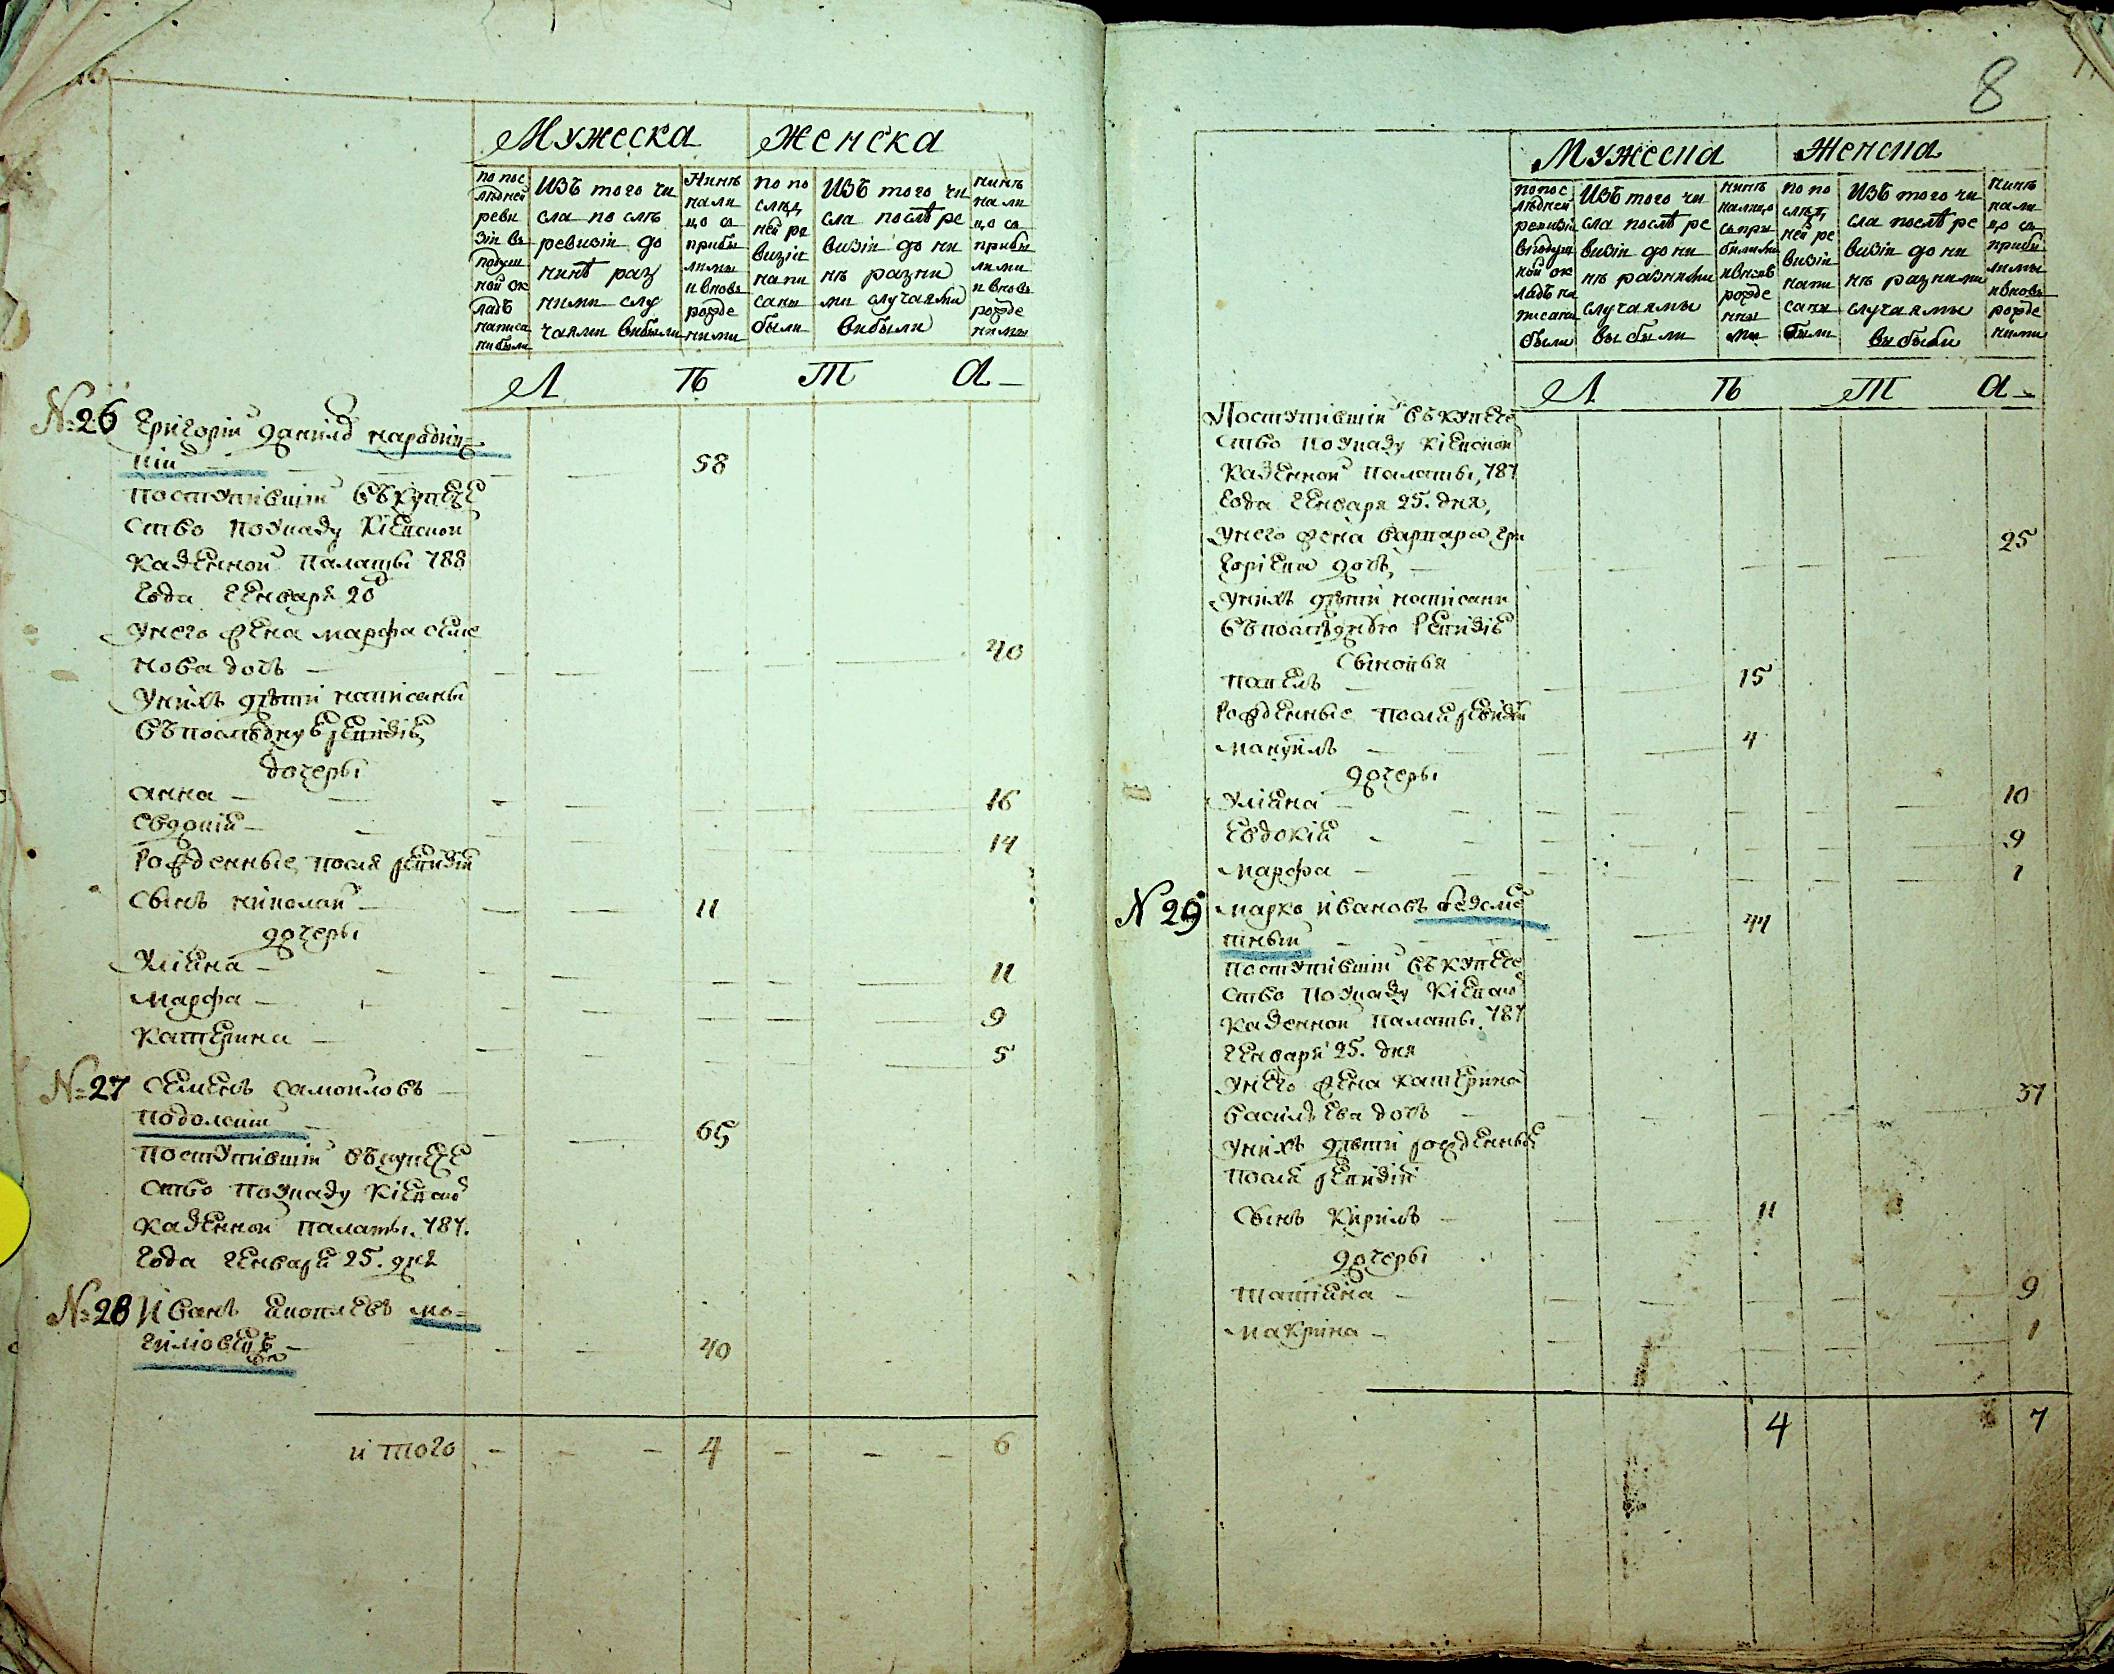 Мужеска Женска
по пос
лѣдней
реви
зіи въ
подуш
ной ок
ладъ
написа
ни были
Изъ того чи
сла по слѣ
ревизіи до
нинѣ раз
ними слу
чаями вибыли
Нинѣ
нали
цо съ
прибы
лими
и вновь
рожде
ними
По по
слѣд
ней ре
визіи
напи
саны
были
Изъ того чи
сла послѣ ре
визіи до ни
нѣ разни
ми случаями
вибыли
Нинѣ
нали
цо съ
прибы
лими
и вновь
рожде
ними
Л Ѣ Т А
№ 26 Григорій Данилов
58
поступившій въ купече
ство по указу Кіевской
казенной палаты 788
года генваря 20
у него жена Марфа Семе
нова дочь 40
у нихъ дѣти написаны
въ последную ревизію
дочеры
Анна 16
Євдокія 14
рожденные после ревизіи
сынъ Николай 11
дочеры
Уліяна 11
Марфа 9
Катерина 5
№ 27 Семенъ Самойловъ
Подолскій 65
поступившій въ купече
ство по указу Кіевской
казенной палаты 787.
года генваря 25. дня
№ 28 Иванъ Яковлевъ Мо=
гиловецъ 40
итого 4 6
8
Мужеска Женска
по пос
лѣдней
ревизіи
в подуш
ной ок
ладъ на
писаны
были
Изъ того чи
сла послѣ ре
визіи до ни
нѣ разними
случаямы
выбыли
Нинѣ
налицо
съ при
былими
и вновь
рожде
нны
ми
По по
слѣд
ней ре
визіи
напи
саны
были
Изъ того чи
сла послѣ ре
визіи до ни
нѣ разними
случаямы
выбыли
Нинѣ
нали
цо съ
прибы
лимы
и вновь
рожде
ними
Л Ѣ Т А
Поступившій въ купече
ство по указу Кіевской
казенной палаты, 787
года генваря 25. дня,
у него жена Варвара Гри 25
горіева дочь,
у нихъ дѣти написани
въ последнюю ревизію
сыновья
Павелъ 15
рожденные после ревизіи
Мануилъ 4
дочеры
Уліяна 10
Евдокія 9
Марфа 1
№ 29 Марко Ивановъ Ведме
44
поступившій въ купече
ство по указу Кіевской
казенной палаты. 787
генваря 25. дня
у него жена Катерина
Василъева дочь 37
у нихъ дѣти рожденные
после ревизіи
сынъ Кирилъ 11
дочеры
Татіяна 9
Макрина 1
4 7